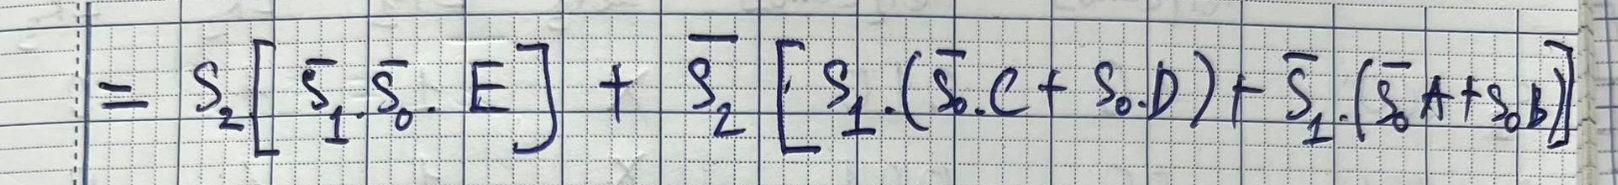 = S₂[S̄₁.S̄₀.E] + S̄₂[S₁.(S̄₀.C + S₀.D) + S̄₁.(S̄₀A + S₀B)]